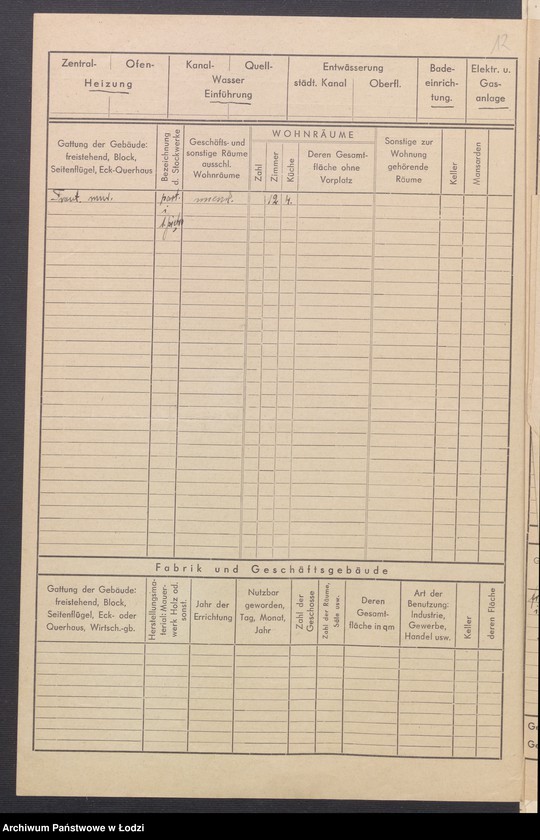 12
Zentral- Ofen-
Heizung
Kanal- Quell-
Wasser
Einführung
Entwässerung
städt. Kanal Oberfl.
Bade-
einrich-
tung.
Elektr. u.
Gas-
anlage
Gattung der Gebäude:
freistehend, Block,
Seitenflügel, Eck-Querhaus
Bezeichnung
d. Stockwerke
Geschäfts- und
sonstige Räume
ausschl.
Wohnräume
WOHNRÄUME
Zahl
Zimmer
Küche
Deren Gesamt-
fläche ohne
Vorplatz
Sonstige zur
Wohnung
gehörende
Räume
Keller
Mansarden
Front. mur. part. 12 4.
i
Fabrik und Geschäftsgebäude
Gattung der Gebäude:
freistehend, Block,
Seitenflügel, Eck- oder
Querhaus, Wirtsch.-gb.
Herstellungsma-
terial: Mauer-
werk Holz od.
sonst.
Jahr der
Errichtung
Nutzbar
geworden,
Tag, Monat,
Jahr
Zahl der
Geschosse
Zahl der Räume,
Säle usw.
Deren
Gesamt-
fläche in qm
Art der
Benutzung:
Industrie,
Gewerbe,
Handel usw.
Keller
deren Fläche
Archiwum Państwowe w Łodzi